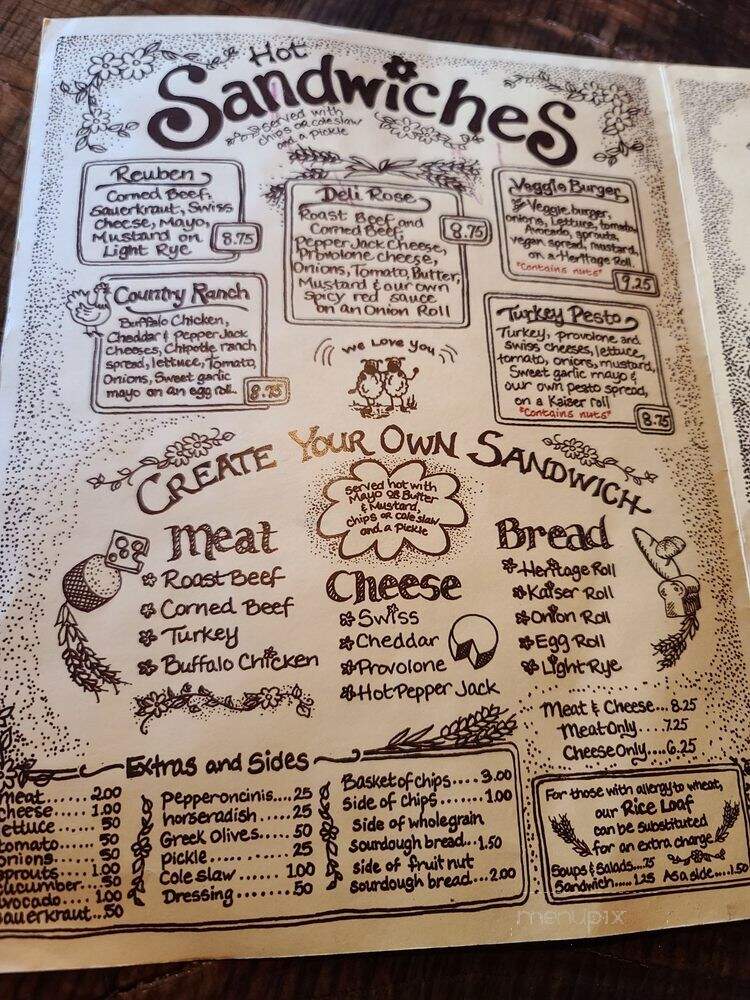 Hot
Sandwiches
served with
chips or coleslaw
and a pickle
Reuben
Corned Beef,
Sauerkraut, Swiss
Cheese, Mayo,
Mustard on
Light Rye
8.75
Deli Rose
Roast Beef and
Corned Beef,
Pepper Jack Cheese,
Provolone cheese,
Onions, Tomato, Butter,
Mustard & our own
spicy red sauce
on an Onion Roll
8.75
Veggie Burger
Veggie burger,
onions, Lettuce, tomato,
Avocado, sprouts,
vegan spread, mustard,
on a Heritage Roll
*Contains nuts*
9.25
Country Ranch
Buffalo Chicken,
Cheddar & Pepper Jack
Cheeses, Chipotle ranch
spread, lettuce, Tomato,
Onions, Sweet garlic
mayo on an egg roll.
8.75
We Love You
Turkey Pesto
Turkey, provolone and
swiss cheeses, lettuce,
tomato, onions, mustard,
Sweet garlic mayo &
our own pesto spread,
on a Kaiser roll
*Contains nuts*
8.75
Create Your Own Sandwich
served hot with
Mayo OR Butter
& Mustard,
chips or coleslaw
and a pickle
Meat
Roast Beef
Corned Beef
Turkey
Buffalo Chicken
Cheese
Swiss
Cheddar
Provolone
Hot Pepper Jack
Bread
Heritage Roll
Kaiser Roll
Onion Roll
Egg Roll
Light Rye
Meat & Cheese... 8.25
Meat Only.... 7.25
Cheese Only.... 6.25
Extras and Sides
meat...... 2.00
cheese...... 1.00
ettuce...... 50
tomato...... 50
onions..... 50
sprouts.... 1.00
cucumber...50
avocado.... 1.00
sauerkraut...50
Pepperoncinis....25
horseradish..... 25
Greek Olives..... 50
pickle......... 25
Coleslaw...... 1.00
Dressing....... 50
Basket of chips.... 3.00
side of chips...... 1.00
side of wholegrain
sourdough bread...1.50
side of fruit nut
sourdough bread....2.00
For those with allergy to wheat,
our Rice Loaf
can be substituted
for an extra charge
Soups & Salads...75
Sandwich..... 1.25 As a side....1.50
menupix